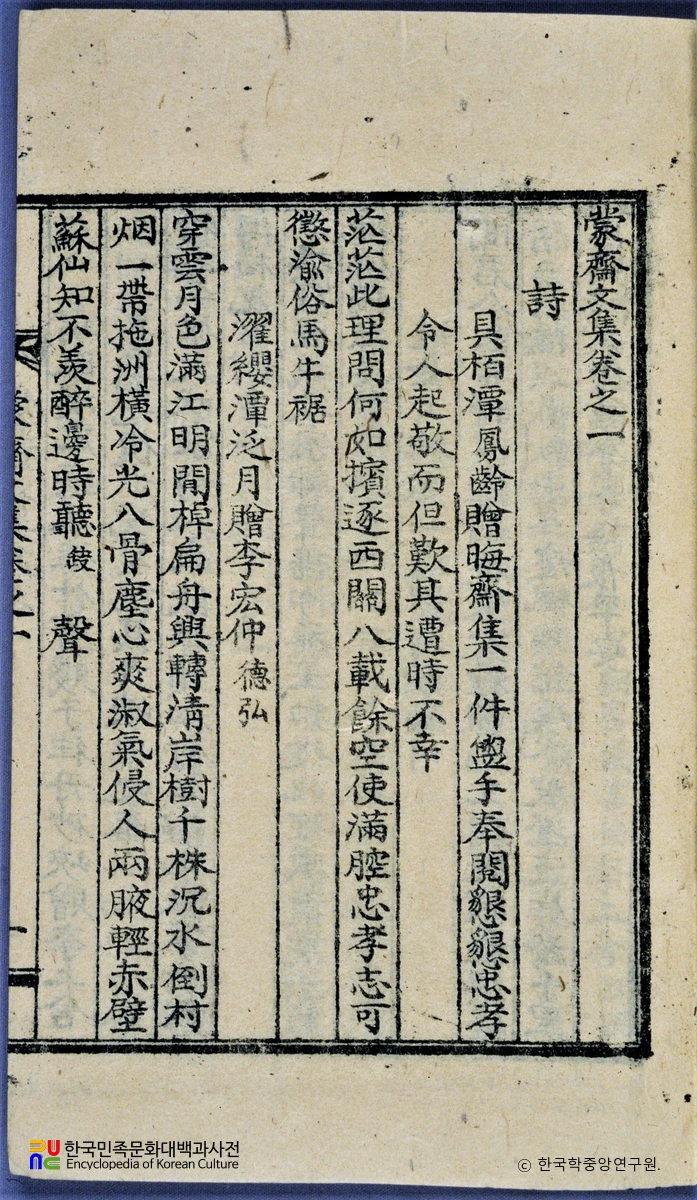 蒙齋文集卷之一
詩
具栢潭鳳齡贈晦齋集一件盥手奉閱懇懇忠孝
令人起敬而但歎其遭時不幸
茫茫此理問何如擯逐西關八載餘空使滿腔忠孝志可
懲渝俗馬牛裾
濯纓潭泛月贈李宏仲德弘
穿雲月色滿江明閒棹扁舟興轉淸岸樹千株沉水倒村
烟一帶拖洲橫冷光入骨塵心爽淑氣侵人兩腋輕赤壁
蘇仙知不羨醉邊時聽 聲
蒙齋文集卷之一
한국민족문화대백과사전
Encyclopedia of Korean Culture
© 한국학중앙연구원.